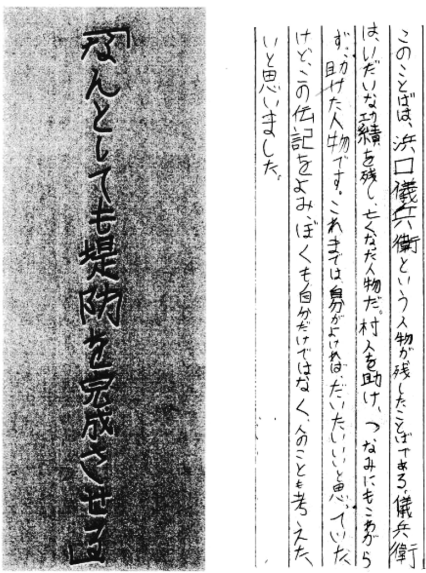 このことばは、浜口儀兵衛という人物が残したことばである。儀兵衛
はいだいな功績を残し、亡くなた人物だ。村人を助け、つなみにもこわがら
ず、助けた人物です。これまでは、自分がよければ、だいたいいいと思っていた
けど、この伝記をよみ、ぼくも自分だけではなく、人のことも考えた
いと思いました。
「なんとしても堤防を完成させる」